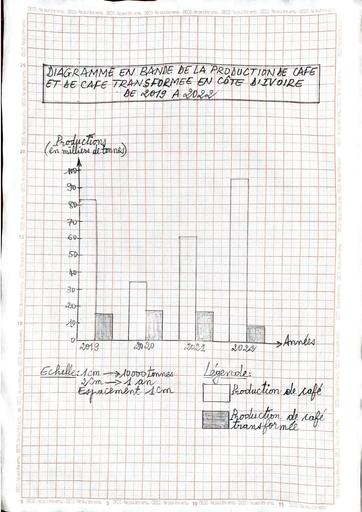 DIAGRAMME EN BANDE DE LA PRODUCTION DE CAFE
ET DE CAFE TRANSFORMEE EN CÔTE D'IVOIRE
DE 2019 A 2022
Productions
(en milliers de tonnes)
100
90
80
70
60
50
40
30
20
10
0
2019 2020 2021 2022
Années
Echelle: 1cm → 10000 tonnes
2cm → 1 an
Espacement 1cm
Légende:
Production de café
Production de café
transformée